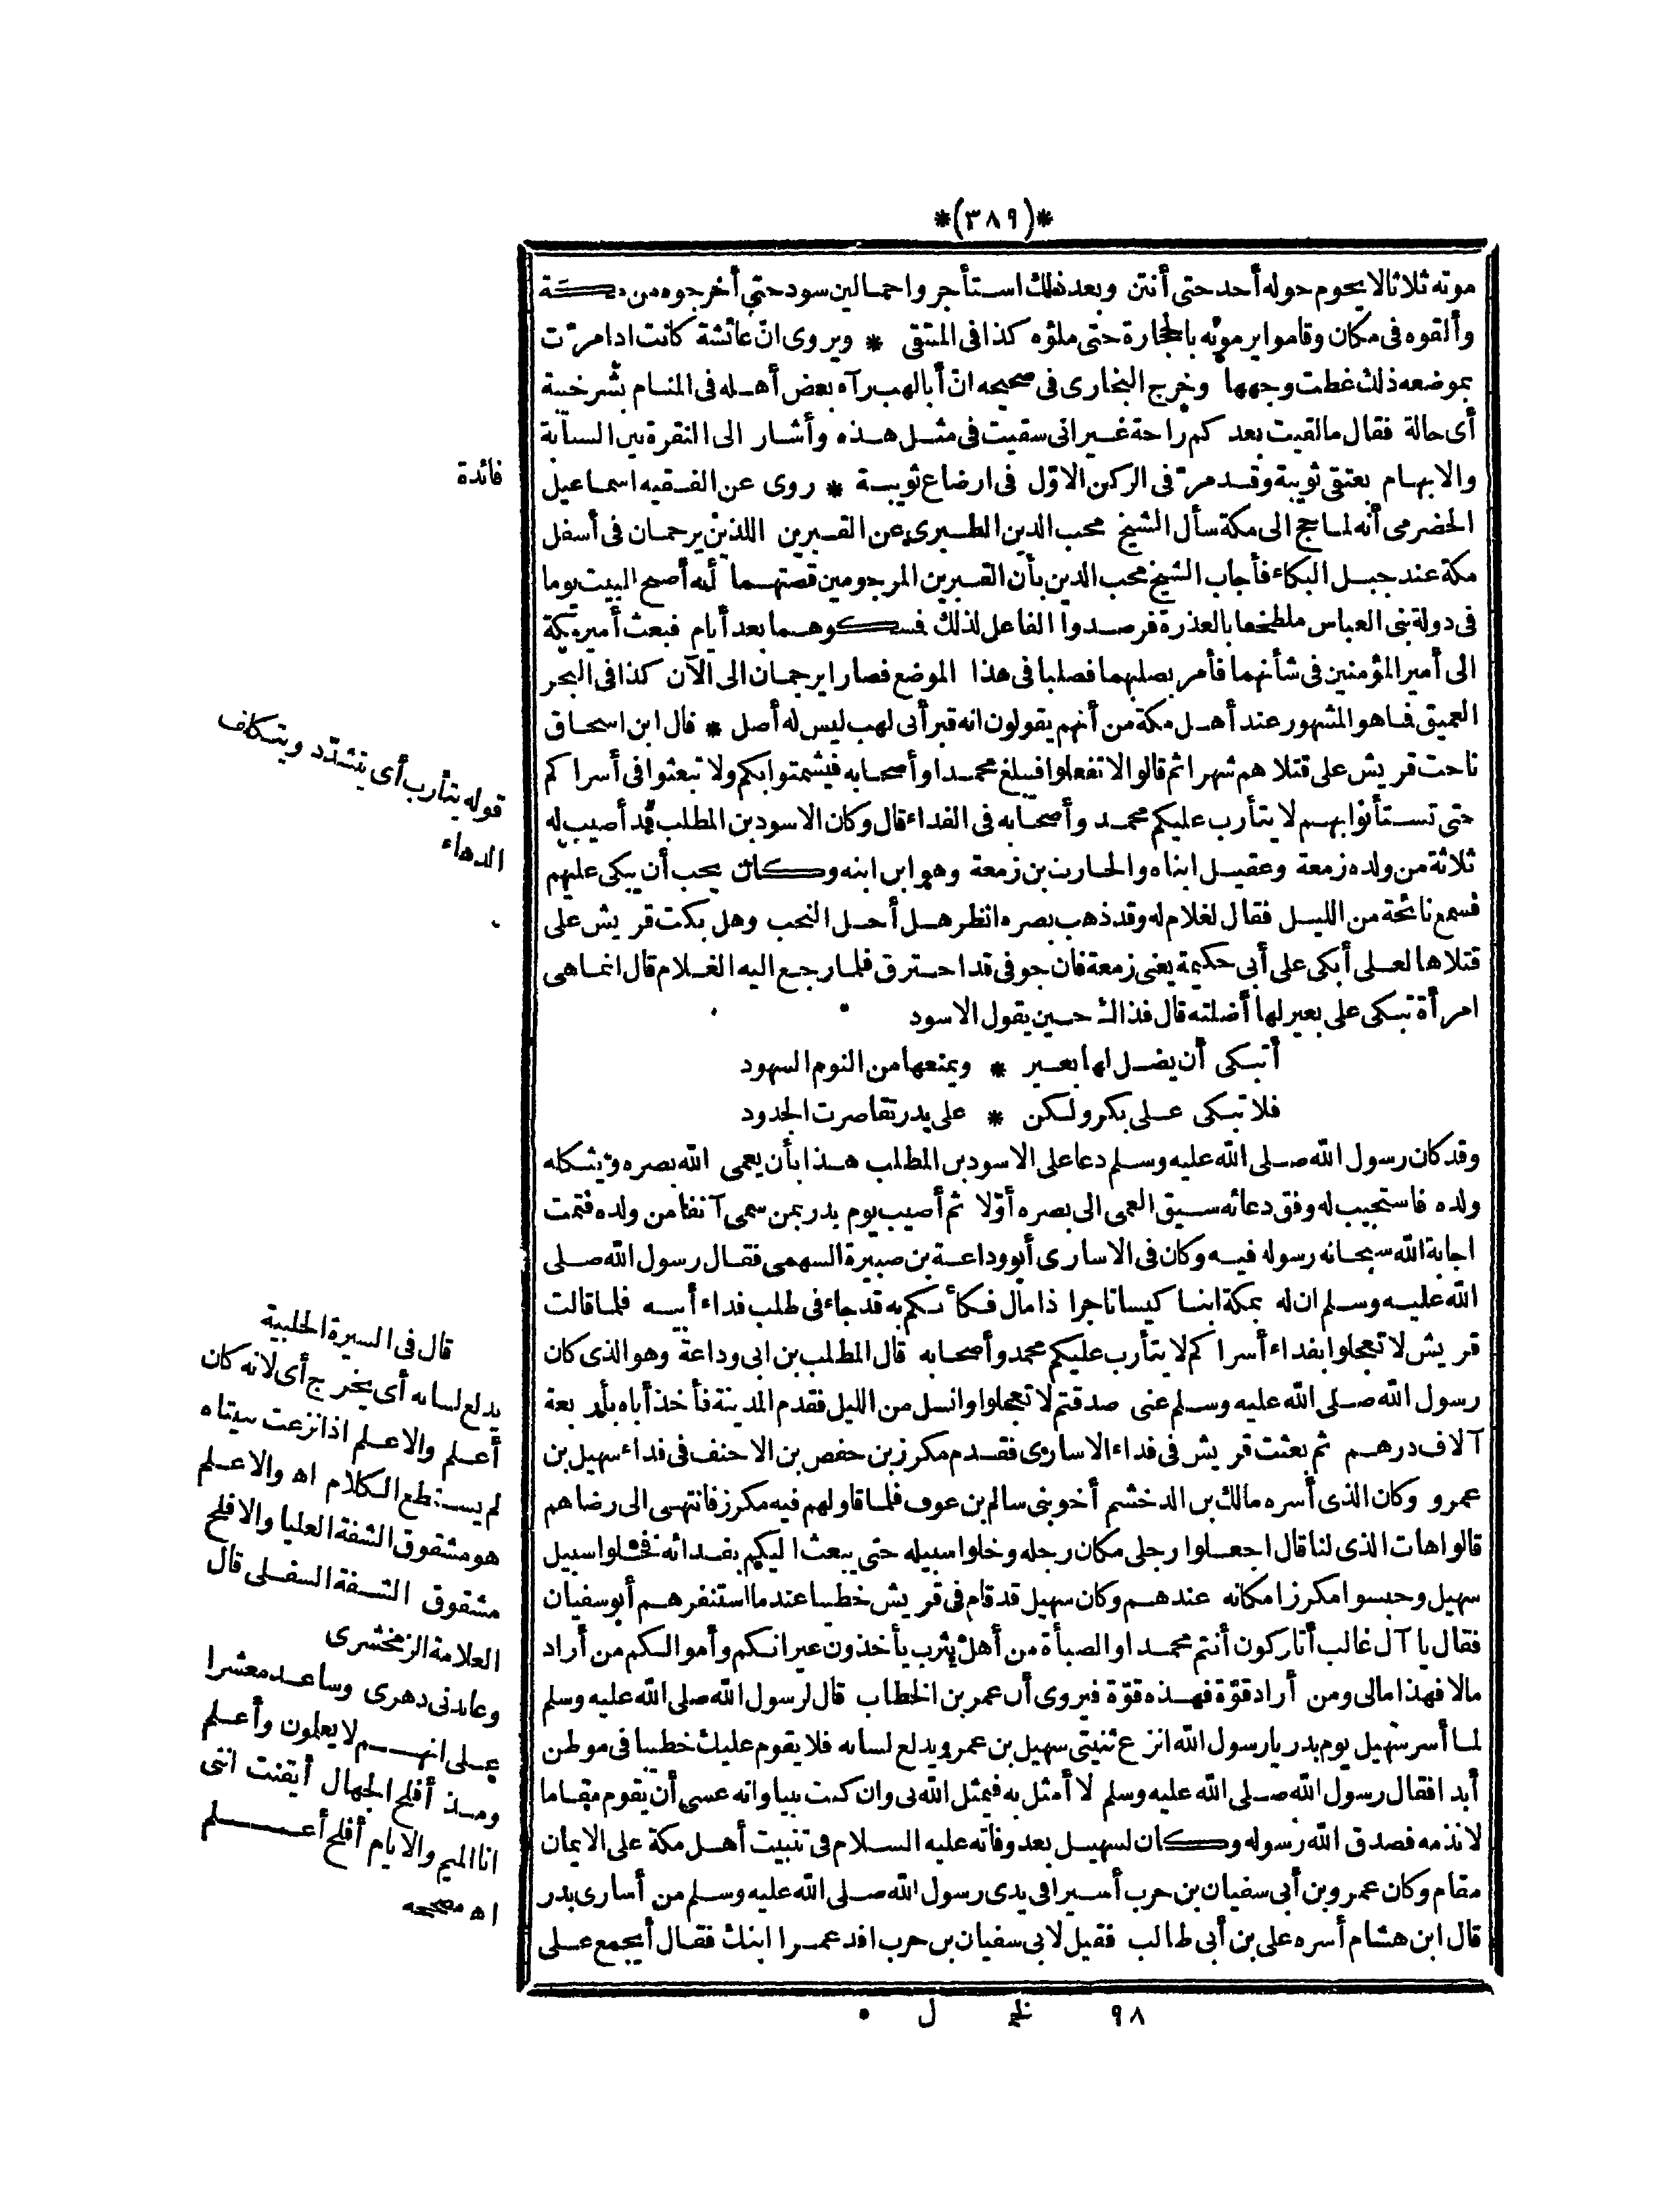 *(٣٨٩)*
موته ثلاثا لا يحوم حوله أحد حتى أنتن وبعد ذلك استأجروا حمالين سود حتى أخرجوه من مكة
وألقوه فى مكان وقاموا يرمونه بالحجارة حتى ملؤه كذا فى المنتقى * ويروى انّ عائشة كانت اذا مرّت
بموضعه ذلك غطت وجهها وخرج البخارى فى صحيحه انّ أبا لهب رآه بعض أهله فى المنام بشر خيبة
أى حالة فقال ما لقيت بعدكم راحة غير انى سقيت فى مثل هذه وأشار الى النقرة بين السبابة
والابهام بعتقى ثويبة وقد مرّ فى الركن الاوّل فى ارضاع ثويبة * روى عن الفقيه اسماعيل
فائدة
الحضرمى أنه لما حج الى مكة سأل الشيخ محب الدين الطبرى عن القبرين اللذين يرجمان فى أسفل
مكة عند جبل البكاء فأجاب الشيخ محب الدين بأن القبرين المرجومين قصتهما أنه أصبح البيت يوما
فى دولة بنى العباس ملطخا بالعذرة فرصدوا الفاعل لذلك فمسكوهما بعد أيام فبعث أمير مكة
الى أمير المؤمنين فى شأنهما فأمر بصلبهما فصلبا فى هذا الموضع فصارا يرجمان الى الآن كذا فى البحر
العميق فما هو المشهور عند أهل مكة من أنهم يقولون انه قبر أبى لهب ليس له أصل * قال ابن اسحاق
ناحت قريش على قتلاهم شهرا ثم قالوا لا تفعلوا فيبلغ محمدا وأصحابه فيشمتوا بكم ولا تبعثوا فى أسراكم
حتى تستأنوا بهم لا يتأرب عليكم محمد وأصحابه فى الفداء قال وكان الاسود بن المطلب قد أصيب له
قوله يتأرب أى يتشدّد ويتكلف
الدهاء
ثلاثة من ولده زمعة وعقيل ابناه والحارث بن زمعة وهو ابن ابنه وكان يحب أن يبكى عليهم
فسمع نائحة من الليل فقال لغلام له وقد ذهب بصره انظر هل أحل النحب وهل بكت قريش على
قتلاها لعلى أبكى على أبى حكيمة يعنى زمعة فان جوفى قد احترق فلما رجع اليه الغلام قال انما هى
امرأة تبكى على بعير لها أضلته قال فذاك حين يقول الاسود
أتبكى أن يضل لها بعير * ويمنعها من النوم السهود
فلا تبكى على بكر ولكن * على بدر تقاصرت الجدود
وقد كان رسول الله صلى الله عليه وسلم دعا على الاسود بن المطلب هذا بأن يعمى الله بصره ويثكله
ولده فاستجيب له وفق دعائه سبق العمى الى بصره أوّلا ثم أصيب يوم بدر بمن سمى آنفا من ولده فتمت
اجابة الله سبحانه رسوله فيه وكان فى الاسارى أبو وداعة بن صبيرة السهمى فقال رسول الله صلى
الله عليه وسلم ان له بمكة ابنا كيسا تاجرا ذا مال فكأنكم به قد جاء فى طلب فداء أبيه فلما قالت
قريش لا تعجلوا بفداء أسراكم لا يتأرب عليكم محمد وأصحابه قال المطلب بن ابى وداعة وهو الذى كان
رسول الله صلى الله عليه وسلم عنى صدقتم لا تعجلوا وانسل من الليل فقدم المدينة فأخذ أباه بأربعة
آلاف درهم ثم بعثت قريش فى فداء الاسارى فقدم مكرز بن حفص بن الاحنف فى فداء سهيل بن
عمرو وكان الذى أسره مالك بن الدخشم أخو بنى سالم بن عوف فلما قاولهم فيه مكرز فانتهى الى رضاهم
قالوا هات الذى لنا قال اجعلوا رجلى مكان رجله وخلوا سبيله حتى يبعث اليكم بفدائه فخلوا سبيل
سهيل وحبسوا مكرزا مكانه عندهم وكان سهيل قد قام فى قريش خطيبا عندما استنفرهم أبو سفيان
فقال يا آل غالب أتاركون أنتم محمدا والصبأة من أهل يثرب يأخذون عيرانكم وأموالكم من أراد
مالا فهذا مالى ومن أراد قوّة فهذه قوّة فيروى أن عمر بن الخطاب قال لرسول الله صلى الله عليه وسلم
لما أسر سهيل يوم بدر يا رسول الله انزع ثنيتى سهيل بن عمرو يدلع لسانه فلا يقوم عليك خطيبا فى موطن
أبدا فقال رسول الله صلى الله عليه وسلم لا أمثل به فيمثل الله بى وان كنت نبيا وانه عسى أن يقوم مقاما
لا نذمه فصدق الله رسوله وكان لسهيل بعد وفاته عليه السلام فى تثبيت أهل مكة على الايمان
مقام وكان عمرو بن أبى سفيان بن حرب أسيرا فى يدى رسول الله صلى الله عليه وسلم من أسارى بدر
قال ابن هشام أسره على بن أبى طالب فقيل لابى سفيان بن حرب افد عمرا ابنك فقال أيجمع على
قال فى السيرة الحلبية
يدلع لسانه أى يخرج أى لانه كان
أعلم والاعلم اذا نزعت ثنيتاه
لم يستطع الكلام اه والاعلم
هو مشقوق الشفة العليا والافلح
مشقوق الشفة السفلى قال
العلامة الزمخشرى
وعاندنى دهرى وساعد معشرا
على انهم لا يعلمون وأعلم
ومذ أفلح الجهال أيقنت اننى
انا الميم والايام أفلح أعلم
اه مصححه
٩٨ ل